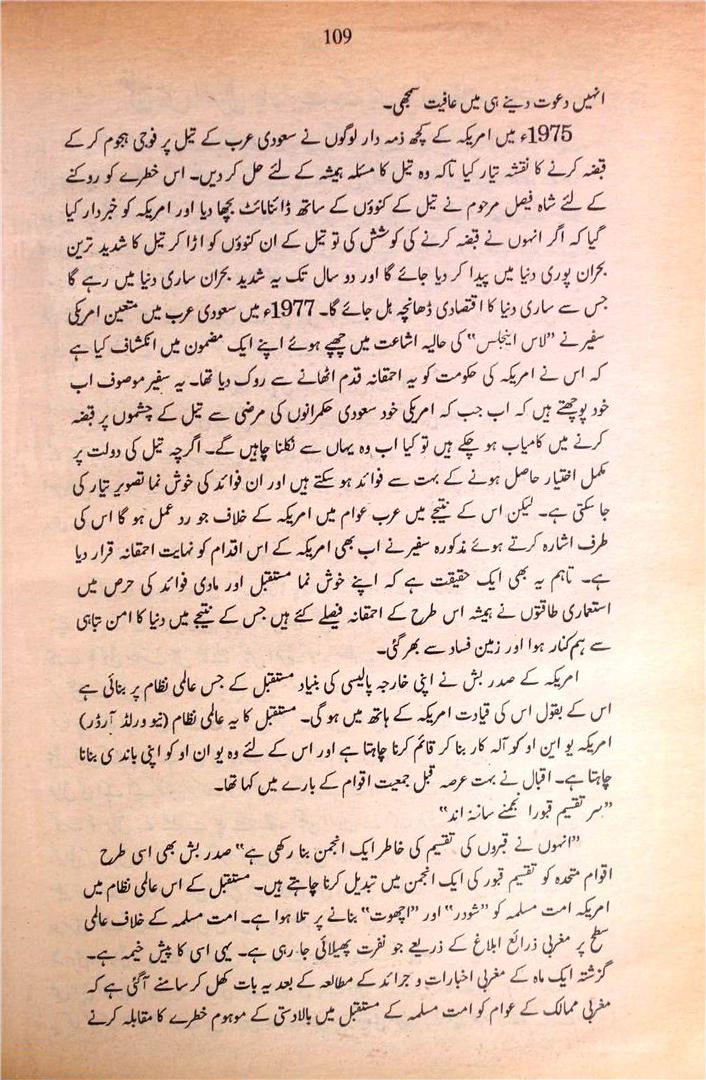 109
انہیں دعوت دینے ہی میں عافیت سمجھی۔
1975ء میں امریکہ کے کچھ ذمہ دار لوگوں نے سعودی عرب کے تیل پر فوجی ہجوم کر کے
قبضہ کرنے کا نقشہ تیار کیا تاکہ وہ تیل کا مسئلہ ہمیشہ کے لئے حل کر دیں۔ اس خطرے کو روکنے
کے لئے شاہ فیصل مرحوم نے تیل کے کنوؤں کے ساتھ ڈائنامائٹ بچھا دیا اور امریکہ کو خبردار کیا
گیا کہ اگر انہوں نے قبضہ کرنے کی کوشش کی تو تیل کے ان کنوؤں کو اڑا کر تیل کا شدید ترین
بحران پوری دنیا میں پیدا کر دیا جائے گا اور دو سال تک یہ شدید بحران ساری دنیا میں رہے گا
جس سے ساری دنیا کا اقتصادی ڈھانچہ ہل جائے گا۔ 1977ء میں سعودی عرب میں متعین امریکی
سفیر نے ”لاس اینجلس“ کی حالیہ اشاعت میں چھپے ہوئے اپنے ایک مضمون میں انکشاف کیا ہے
کہ اس نے امریکہ کی حکومت کو یہ احمقانہ قدم اٹھانے سے روک دیا تھا۔ یہ سفیر موصوف اب
خود پوچھتے ہیں کہ اب جب کہ امریکی خود سعودی حکمرانوں کی مرضی سے تیل کے چشموں پر قبضہ
کرنے میں کامیاب ہو چکے ہیں تو کیا اب وہ یہاں سے نکلنا چاہیں گے۔ اگرچہ تیل کی دولت پر
مکمل اختیار حاصل ہونے کے بہت سے فوائد ہو سکتے ہیں اور ان فوائد کی خوش نما تصویر تیار کی
جا سکتی ہے۔ لیکن اس کے نتیجے میں عرب عوام میں امریکہ کے خلاف جو رد عمل ہو گا اس کی
طرف اشارہ کرتے ہوئے مذکورہ سفیر نے اب بھی امریکہ کے اس اقدام کو نہایت احمقانہ قرار دیا
ہے۔ تاہم یہ بھی ایک حقیقت ہے کہ اپنے خوش نما مستقبل اور مادی فوائد کی حرص میں
استعماری طاقتوں نے ہمیشہ اس طرح کے احمقانہ فیصلے کئے ہیں جس کے نتیجے میں دنیا کا امن تباہی
سے ہم کنار ہوا اور زمین فساد سے بھر گئی۔
امریکہ کے صدر بش نے اپنی خارجہ پالیسی کی بنیاد مستقبل کے جس عالمی نظام پر بنائی ہے
اس کے بقول اس کی قیادت امریکہ کے ہاتھ میں ہو گی۔ مستقبل کا یہ عالمی نظام (نیو ورلڈ آرڈر)
امریکہ یو این او کو آلہ کار بنا کر قائم کرنا چاہتا ہے اور اس کے لئے وہ یو ان او کو اپنی باندی بنانا
چاہتا ہے۔ اقبال نے بہت عرصہ قبل جمعیت اقوام کے بارے میں کہا تھا۔
”بہر تقسیم قبورا نجمنے ساختہ اند“
”انہوں نے قبروں کی تقسیم کی خاطر ایک انجمن بنا رکھی ہے“ صدر بش بھی اسی طرح
اقوام متحدہ کو تقسیم قبور کی ایک انجمن میں تبدیل کرنا چاہتے ہیں۔ مستقبل کے اس عالمی نظام میں
امریکہ امت مسلمہ کو ”شودر“ اور ”اچھوت“ بنانے پر تلا ہوا ہے۔ امت مسلمہ کے خلاف عالمی
سطح پر مغربی ذرائع ابلاغ کے ذریعے جو نفرت پھیلائی جا رہی ہے۔ یہی اسی کا پیش خیمہ ہے۔
گزشتہ ایک ماہ کے مغربی اخبارات و جرائد کے مطالعہ کے بعد یہ بات کھل کر سامنے آ گئی ہے کہ
مغربی ممالک کے عوام کو امت مسلمہ کے مستقبل میں بالادستی کے موہوم خطرے کا مقابلہ کرنے